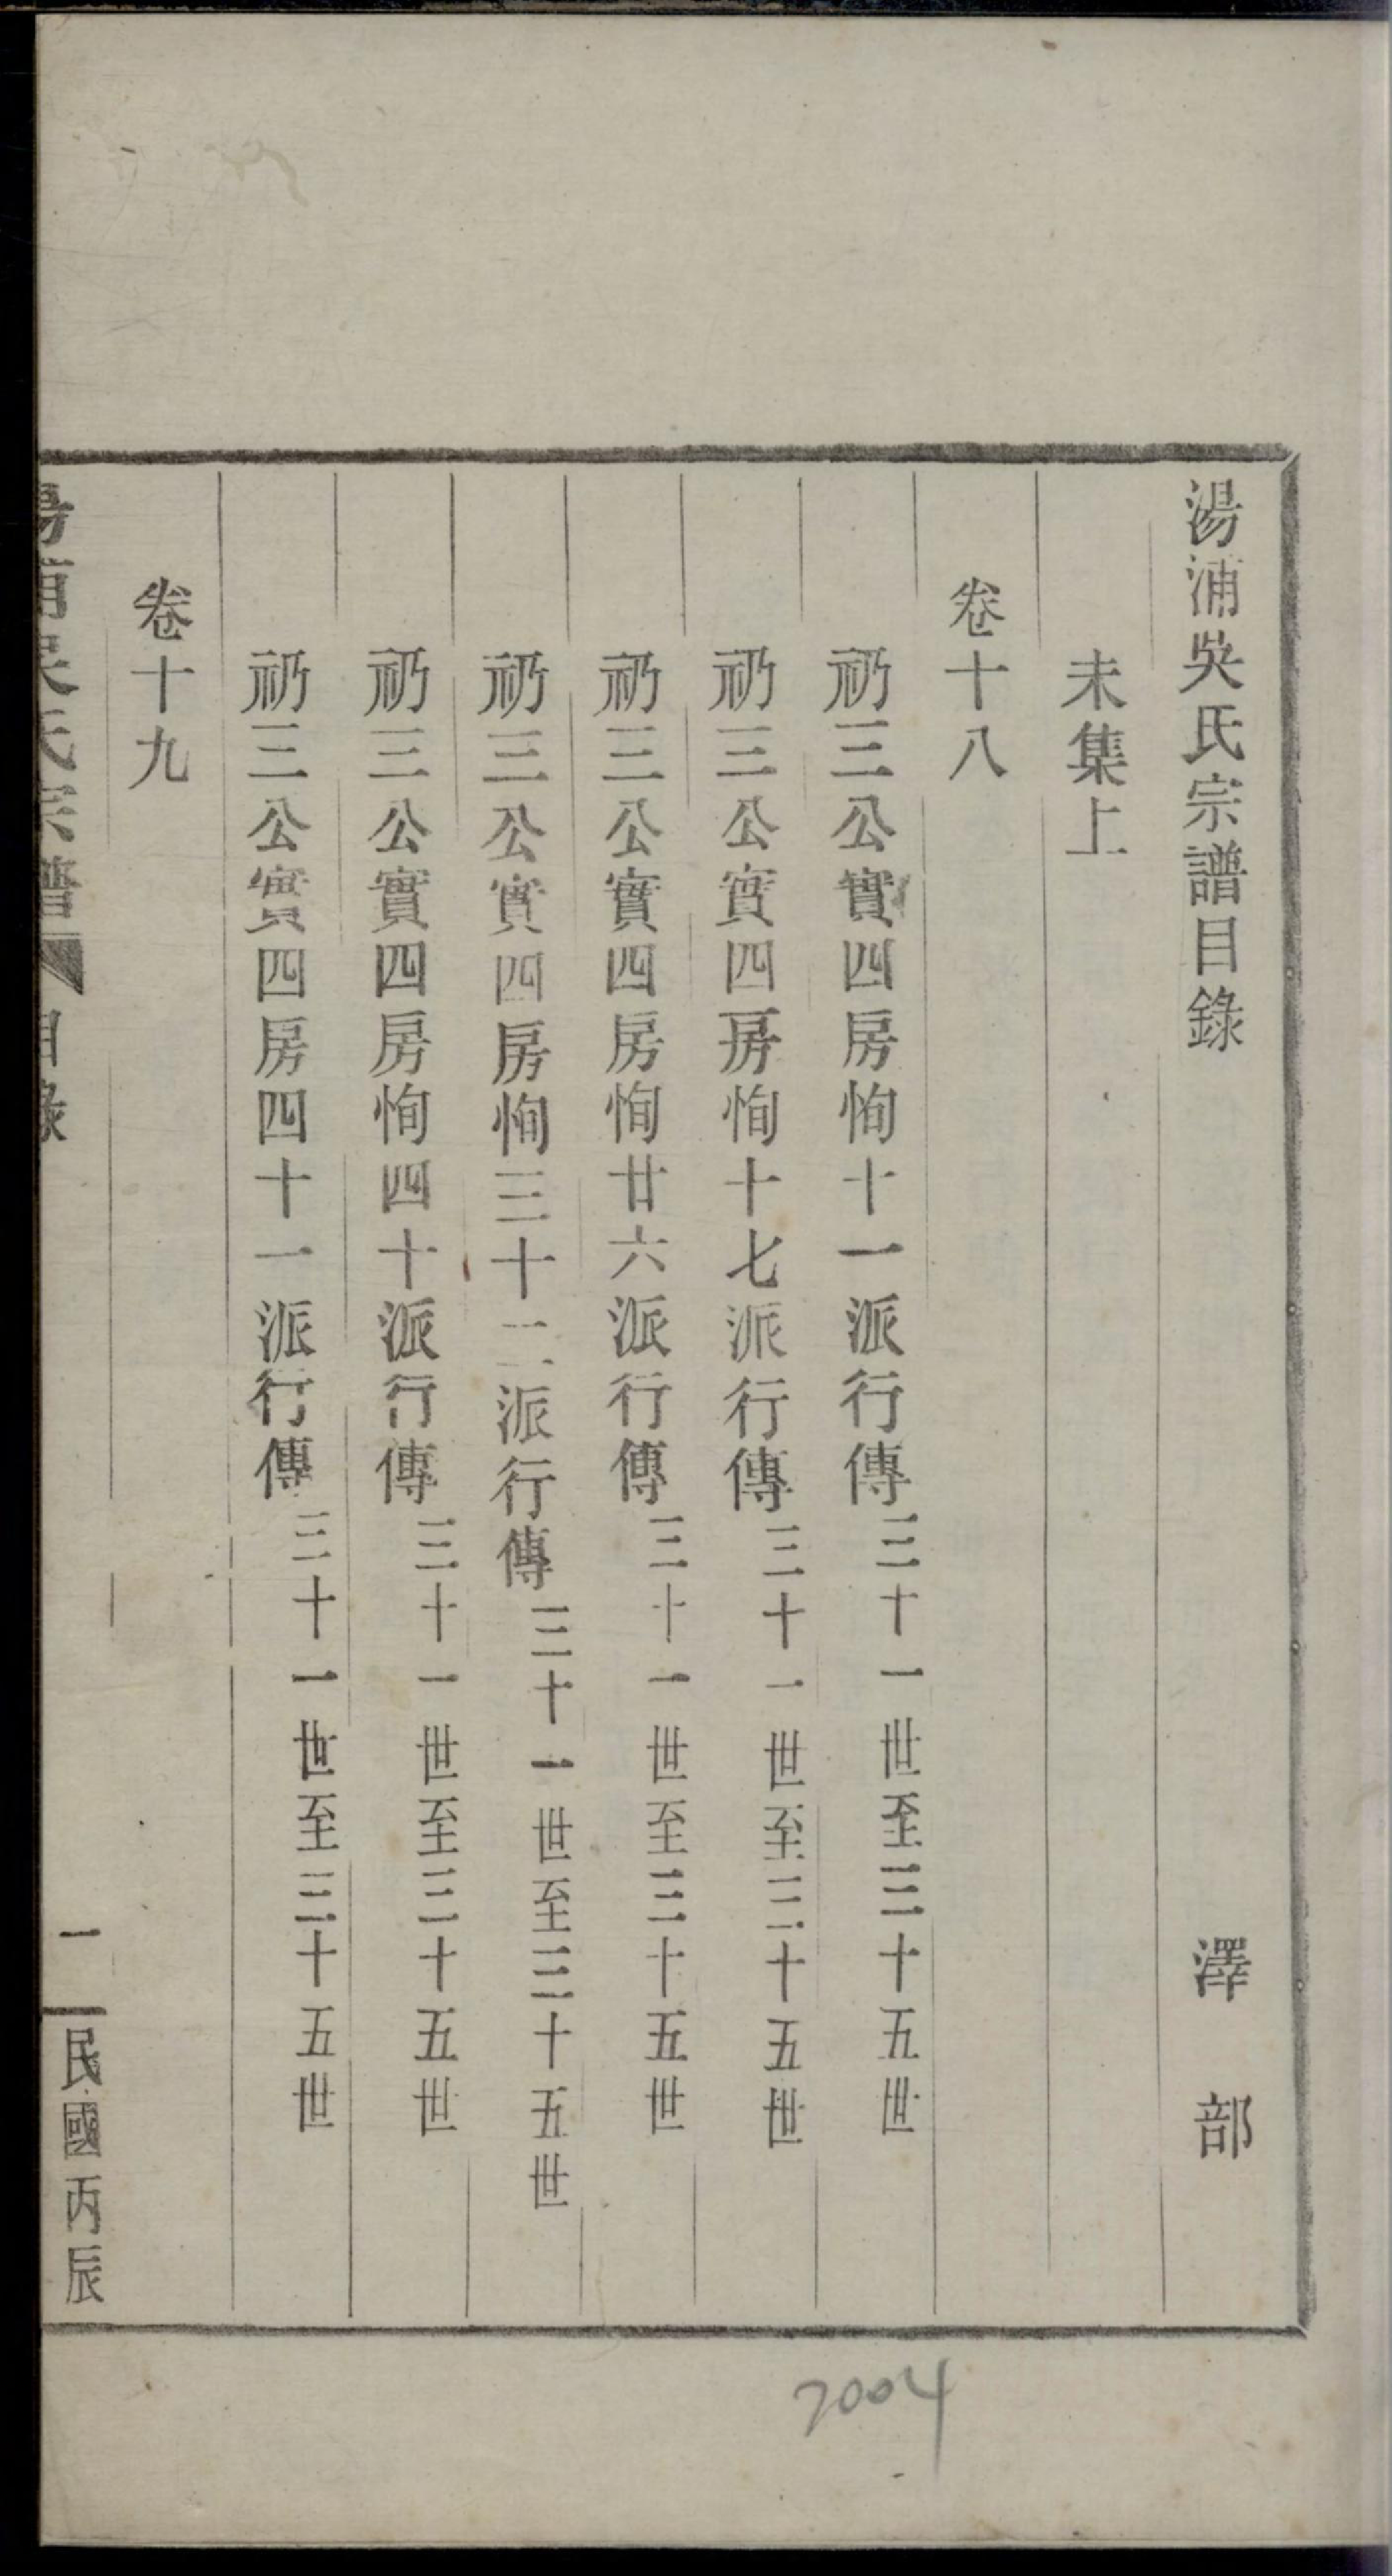 湯浦吳氏宗譜目錄 澤部
未集上
卷十八
礽三公實四房恂十一派行傳三十一世至三十五世
礽三公實四房恂十七派行傳三十一世至三十五世
礽三公實四房恂廿六派行傳三十一世至三十五世
礽三公實四房恂三十二派行傳三十一世至三十五世
礽三公實四房恂四十派行傳三十一世至三十五世
礽三公實四房四十一派行傳三十一世至三十五世
卷十九
湯浦吳氏宗譜 目錄 一 民國丙辰
2004